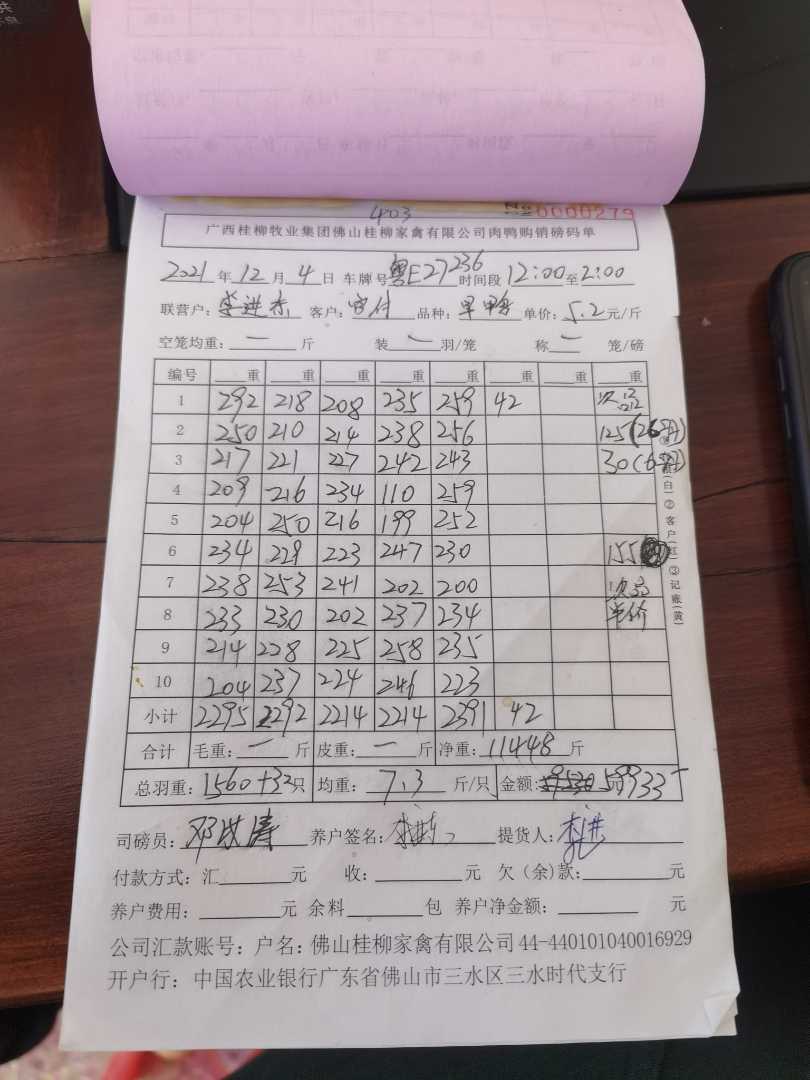 403
№ 0000279
广西桂柳牧业集团佛山桂柳家禽有限公司肉鸭购销磅码单
2021年12月4日 车牌号粤E27236时间段12:00至2:00
联营户：李进 客户： 品种： 单价：5.2元/斤
空笼均重：一斤 装一羽/笼 称一笼/磅
编号 重 重 重 重 重 重 重 重
1 292 218 208 235 259 42 次品
2 250 210 214 238 256 125(26只)
3 217 221 227 242 243 30(6只)
4 209 216 234 110 259
5 204 250 216 199 252
6 234 229 223 247 230 155
7 238 253 241 202 200 次品
8 233 230 202 237 234 单价
9 214 228 225 258 235
10 204 237 224 246 223
小计 2295 2292 2214 2214 2391 42
合计 毛重：一斤 皮重：一斤 净重：11448斤
总羽重：1560+32只 均重：7.3斤/只 金额：59933
(白)②客户(红)③记账(黄)
司磅员：邓 养户签名： 提货人：李进
付款方式：汇 元 收： 元 欠（余）款： 元
养户费用： 元 余料 包 养户净金额： 元
公司汇款账号：户名：佛山桂柳家禽有限公司 44-440101040016929
开户行：中国农业银行广东省佛山市三水区三水时代支行